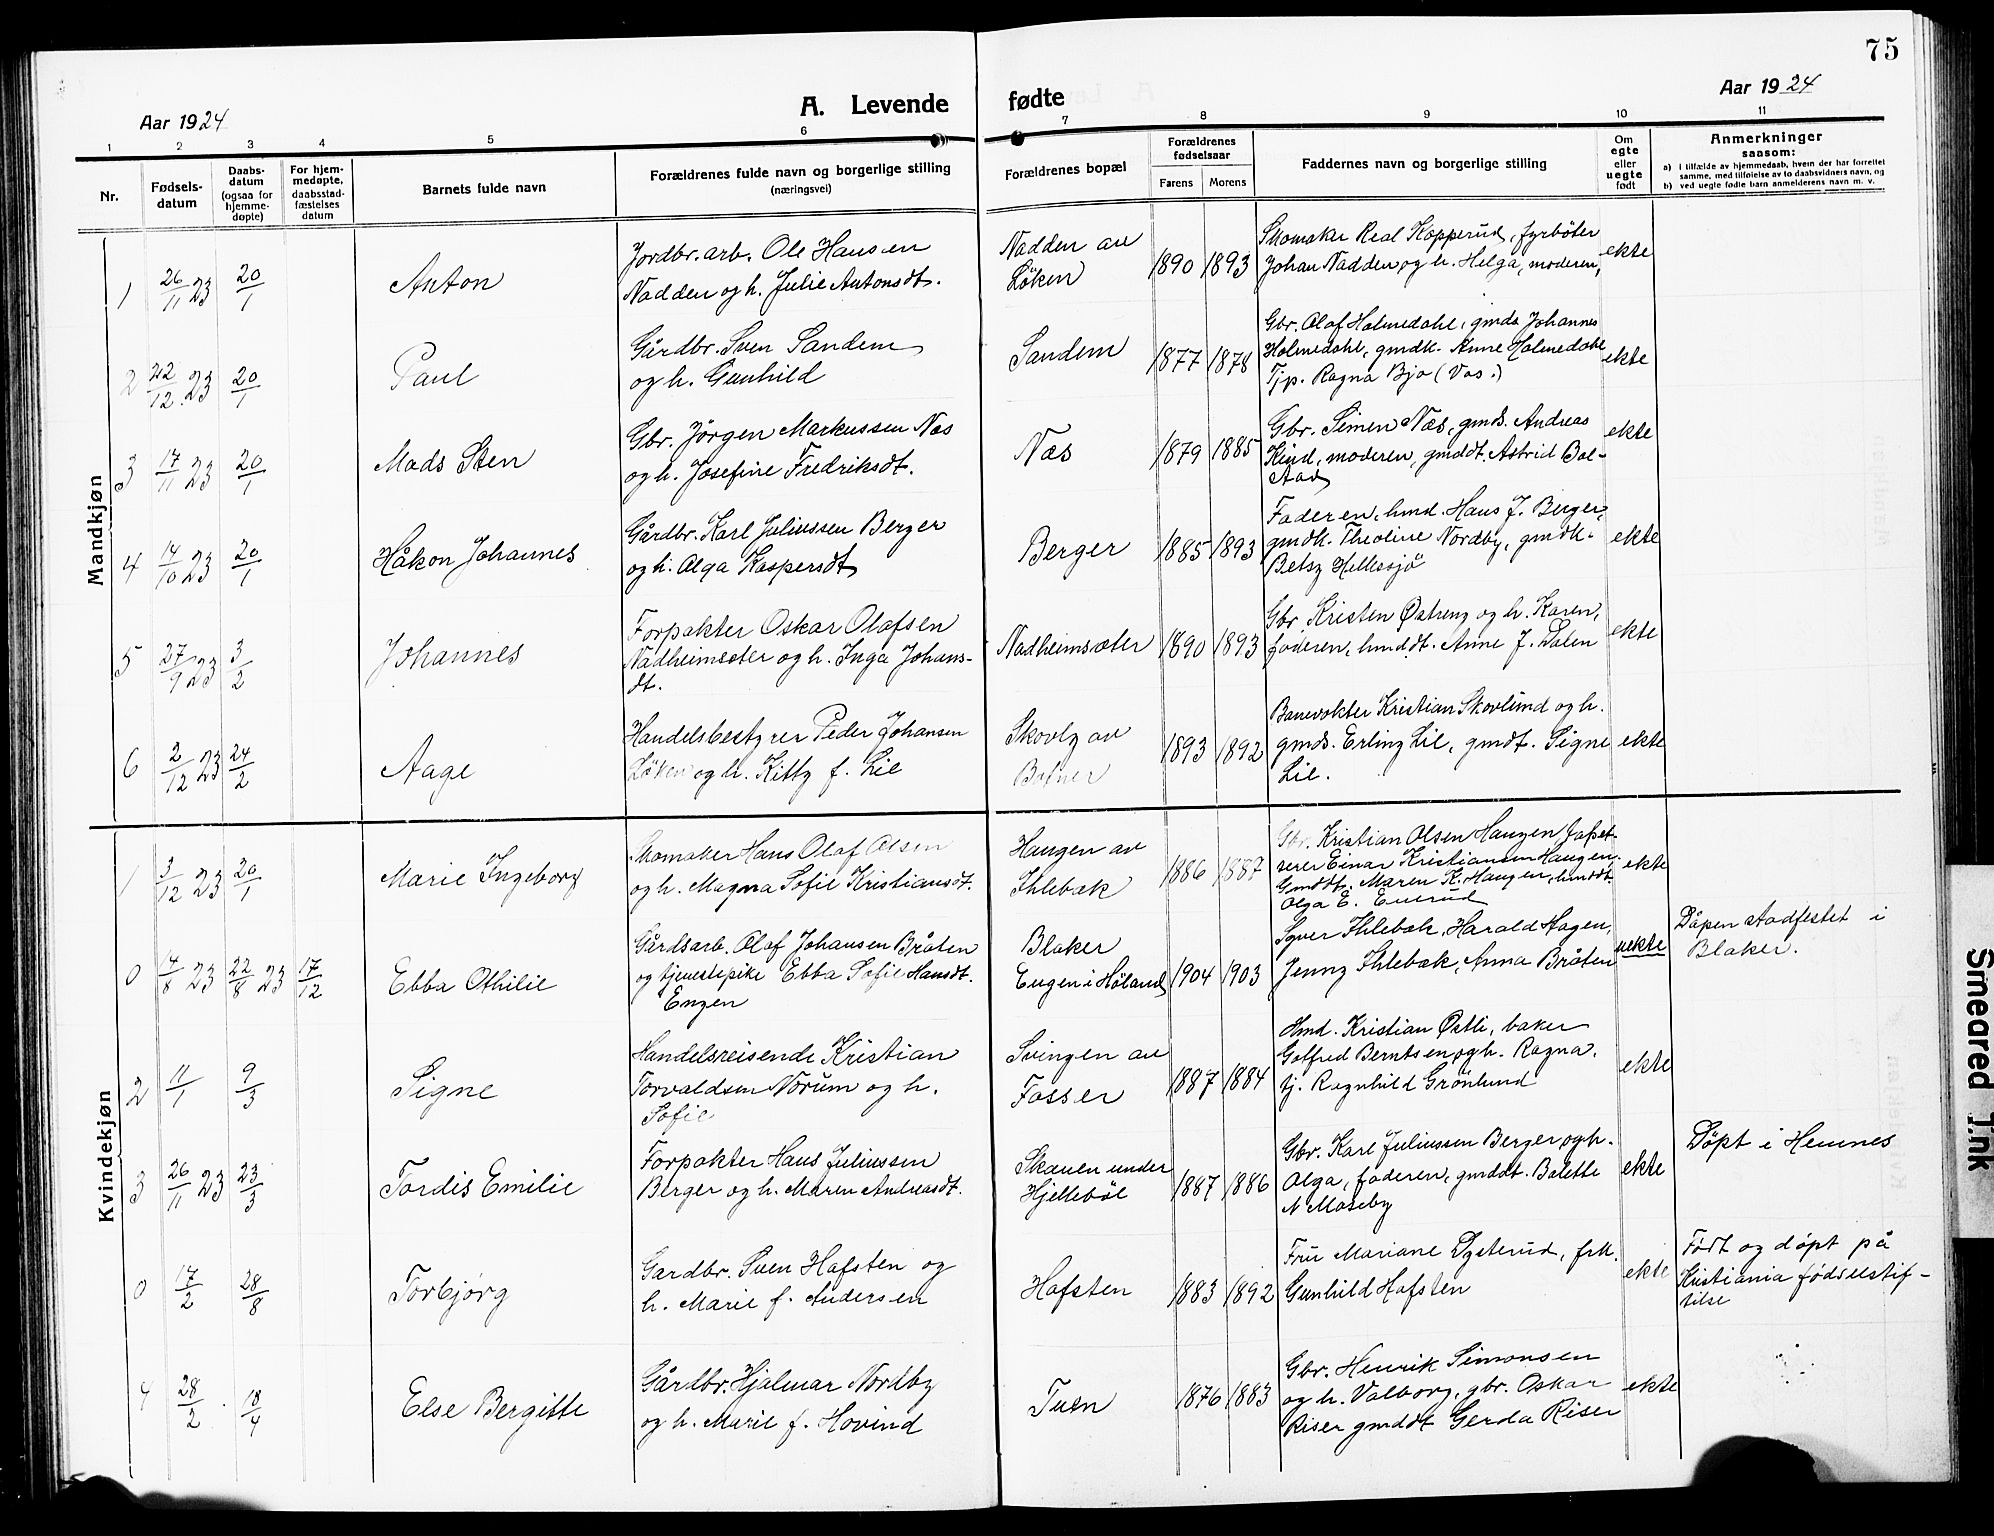 75
Aar 1924
A. Levende
fødte
Aar 1924
1 2 3 4 5 6 7 8 9 10 11
Nr.
Fødsels-
datum
Daabs-
datum
(ogsaa for
hjemme-
døpte)
For hjem-
medøpte,
daabsstad-
fæstelses
datum
Barnets fulde navn
Forældrenes fulde navn og borgerlige stilling
(næringsvei)
Forældrenes bopæl
Forældrenes
fødselsaar
Farens Morens
Faddernes navn og borgerlige stilling
Om
egte
eller
uegte
født
Anmerkninger
saasom:
a) i tilfælde av hjemmedaab, hvem der har forrettet
samme, med tilføielse av to daabsvidners navn, og
b) ved uegte fødte barn anmelderens navn m. v.
Mandkjøn
1 26/11 23 20/1 Anton
Jordbr. arb. Ole Hansen
Nadden og h. Julie Antonsdt.
Nadden av
Løken
1890 1893
Skomaker Real Kopperud, fyrbøter
Johan Nadden og h. Helga, moderen,
ekte
2 22/12 23 20/1 Paul
Gårdbr. Sven Sandem
og h. Gunhild
Sandem
1877 1878
Gbr. Olaf Holmedahl, gmds Johannes
Holmedahl, gmdk. Anne Holmedahl
Tjp. Ragna Bjo (Vos.)
ekte
3 17/11 23 20/1 Mads Sten
Gbr. Jörgen Markussen Næs
og h. Josefine Fredriksdt.
Næs
1879 1885
Gbr. Simen Næs, gmds. Andreas
Kind, moderen, gmddt. Astrid Bol-
stad
ekte
4 14/10 23 20/1 Håkon Johannes
Gårdbr. Karl Juliussen Berger
og h. Olga Kaspersdt
Berger
1885 1893
Faderen, hmd. Hans J. Berger,
gmdk. Theoline Nordby, gmdk.
Betsy Hellesjö
ekte
5 27/9 23 3/2 Johannes
Forpakter Oskar Olafsen
Nadheimsæter og h. Inga Johans-
dt.
Nadheimsæter
1890 1893
Gbr. Kristen Østreng og h. Karen,
faderen, hmddt. Anne J. Dalen
ekte
6 2/12 23 24/2 Aage
Handelsbestyrer Peder Johansen
Løken og h. Kitty f. Lie
Skovly av
Botner
1893 1892
Banevokter Kristian Skovlund og h.
gmds. Erling Lie, gmdt. Signe
Lie.
ekte
Kvindekjøn
1 3/12 23 20/1 Marie Ingeborg
Skomaker Hans Olaf Olsen
og h. Magna Sofie Kristiansdt.
Haugen av
Ihlebæk
1886 1887
Gbr. Kristian Olsen Haugen, tapet-
serer Einar Kristiansen Haugen,
Gmddt. Maren K. Haugen, hmddt.
Olga E.
ekte
0 14/8 23 22/8 23 17/12 Ebba Othilie
Gårdsarb. Olaf Johansen Bråten
og tjenestepike Ebba Sofie Hansdt.
Engen
Blaker
Eugen i Høland
1904 1903
Syver Ihlebæk, Harald Hagen,
Jenny Ihlebæk, Anna Bråten
uekte
Dåpen stadfestet i
Blaker.
2 11/1 9/3 Signe
Handelsreisende Kristian
Torvaldsen Norum og h.
Sofie
Svingen av
Fosser
1887 1884
Hmd. Kristian Østli, baker
Gotfred Berntsen og h. Ragna.
tj. Ragnhild Grönlund
ekte
3 26/11 23 23/3 Tordis Emilie
Forpakter Hans Juliussen
Berger og h. Maren Andreasdt.
Skauen under
Hjellebøl
1887 1886
Gbr. Karl Juliussen Berger og h.
Olga, faderen, gmddt. Balette
N Moseby
ekte
Döpt i Hemnes
0 17/2 28/8 Torbjørg
Gardbr. Sven Hafsten og
h. Marie f. Andersen
Hafsten
1883 1892
Fru Mariane Dysterud, frk.
Gunhild Hafsten
ekte
Født og döpt på
Kristiania fødselstif-
telse
4 28/2 18/4 Else Bergitte
Gårdbr. Hjalmar Nordby
og h. Marie f. Hovind
Tuen
1876 1883
Gbr. Henrik Simonsen
og h. Valborg, gbr. Oskar
Riser gmddt Gerda Riser
ekte
Smeared Ink